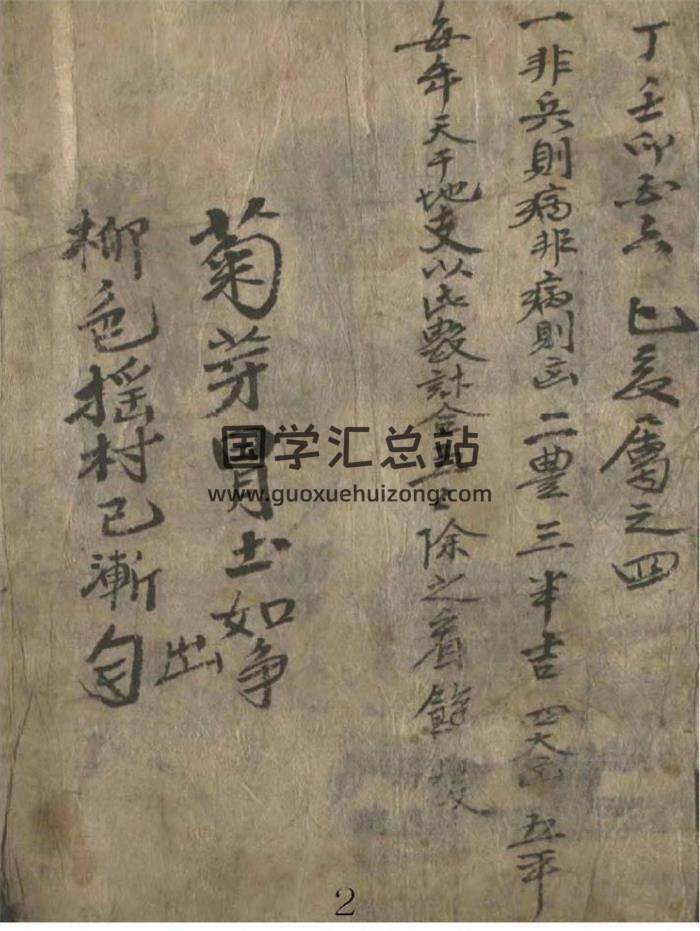 丁壬卯酉六 巳亥屬之四
一非兵則病非病則凶 二豊 三半吉 四大凶 五平
每年天干地支以此數計合 除之看餘數
菊芽冒土如爭出
柳色搖村已漸匀
国学汇总站
www.guoxuehuizong.com
2